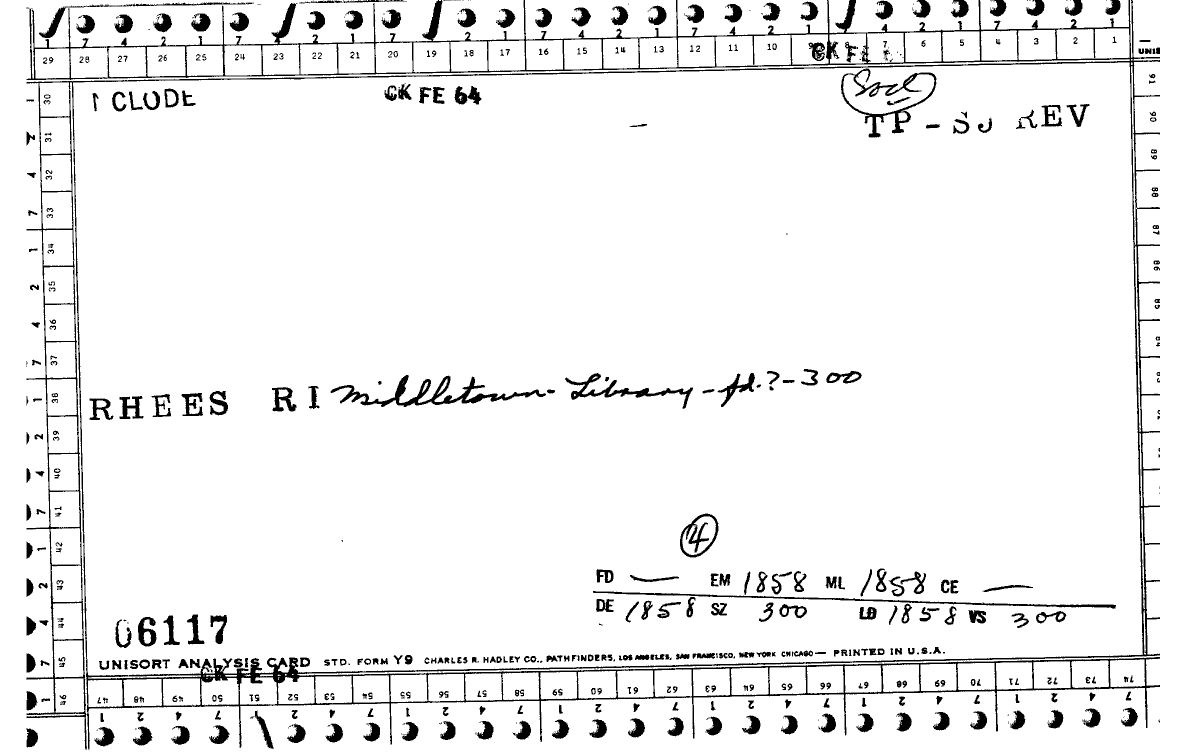 7 4 2 1 7 2 1 7 2 1 7 4 2 1 7 4 2 1 4 2 1 7 4 2 1
29 28 27 26 25 24 23 22 21 20 19 18 17 16 15 14 13 12 11 10 7 6 5 4 3 2 1
CLUDE CK FE 64 Socl
TP - SJ REV
RHEES RI Middletown - Library - fd. ? - 300
4
FD — EM 1858 ML 1858 CE —
DE 1858 SZ 300 LD 1858 VS 300
06117
UNISORT ANALYSIS CARD STD. FORM Y9 CHARLES R. HADLEY CO., PATHFINDERS, LOS ANGELES, SAN FRANCISCO, NEW YORK CHICAGO — PRINTED IN U.S.A.
CK FE 64
47 48 49 50 51 52 53 54 55 56 57 58 59 60 61 62 63 64 65 66 67 68 69 70 71 72 73 74
1 2 4 7 2 4 7 1 2 4 7 1 2 4 7 1 2 4 7 1 2 4 7 1 2 4 7
30 31 32 33 34 35 36 37 38 39 40 41 42 43 44 45 46
91 90 89 88 87 86 85 84 83